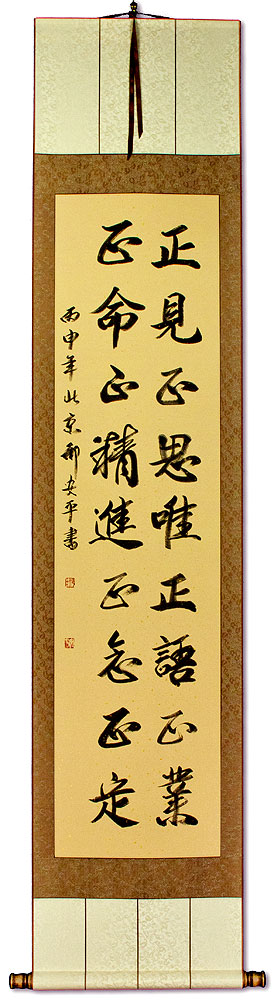 正見正思唯正語正業
正命正精進正念正定
丙申年北京邢安平書